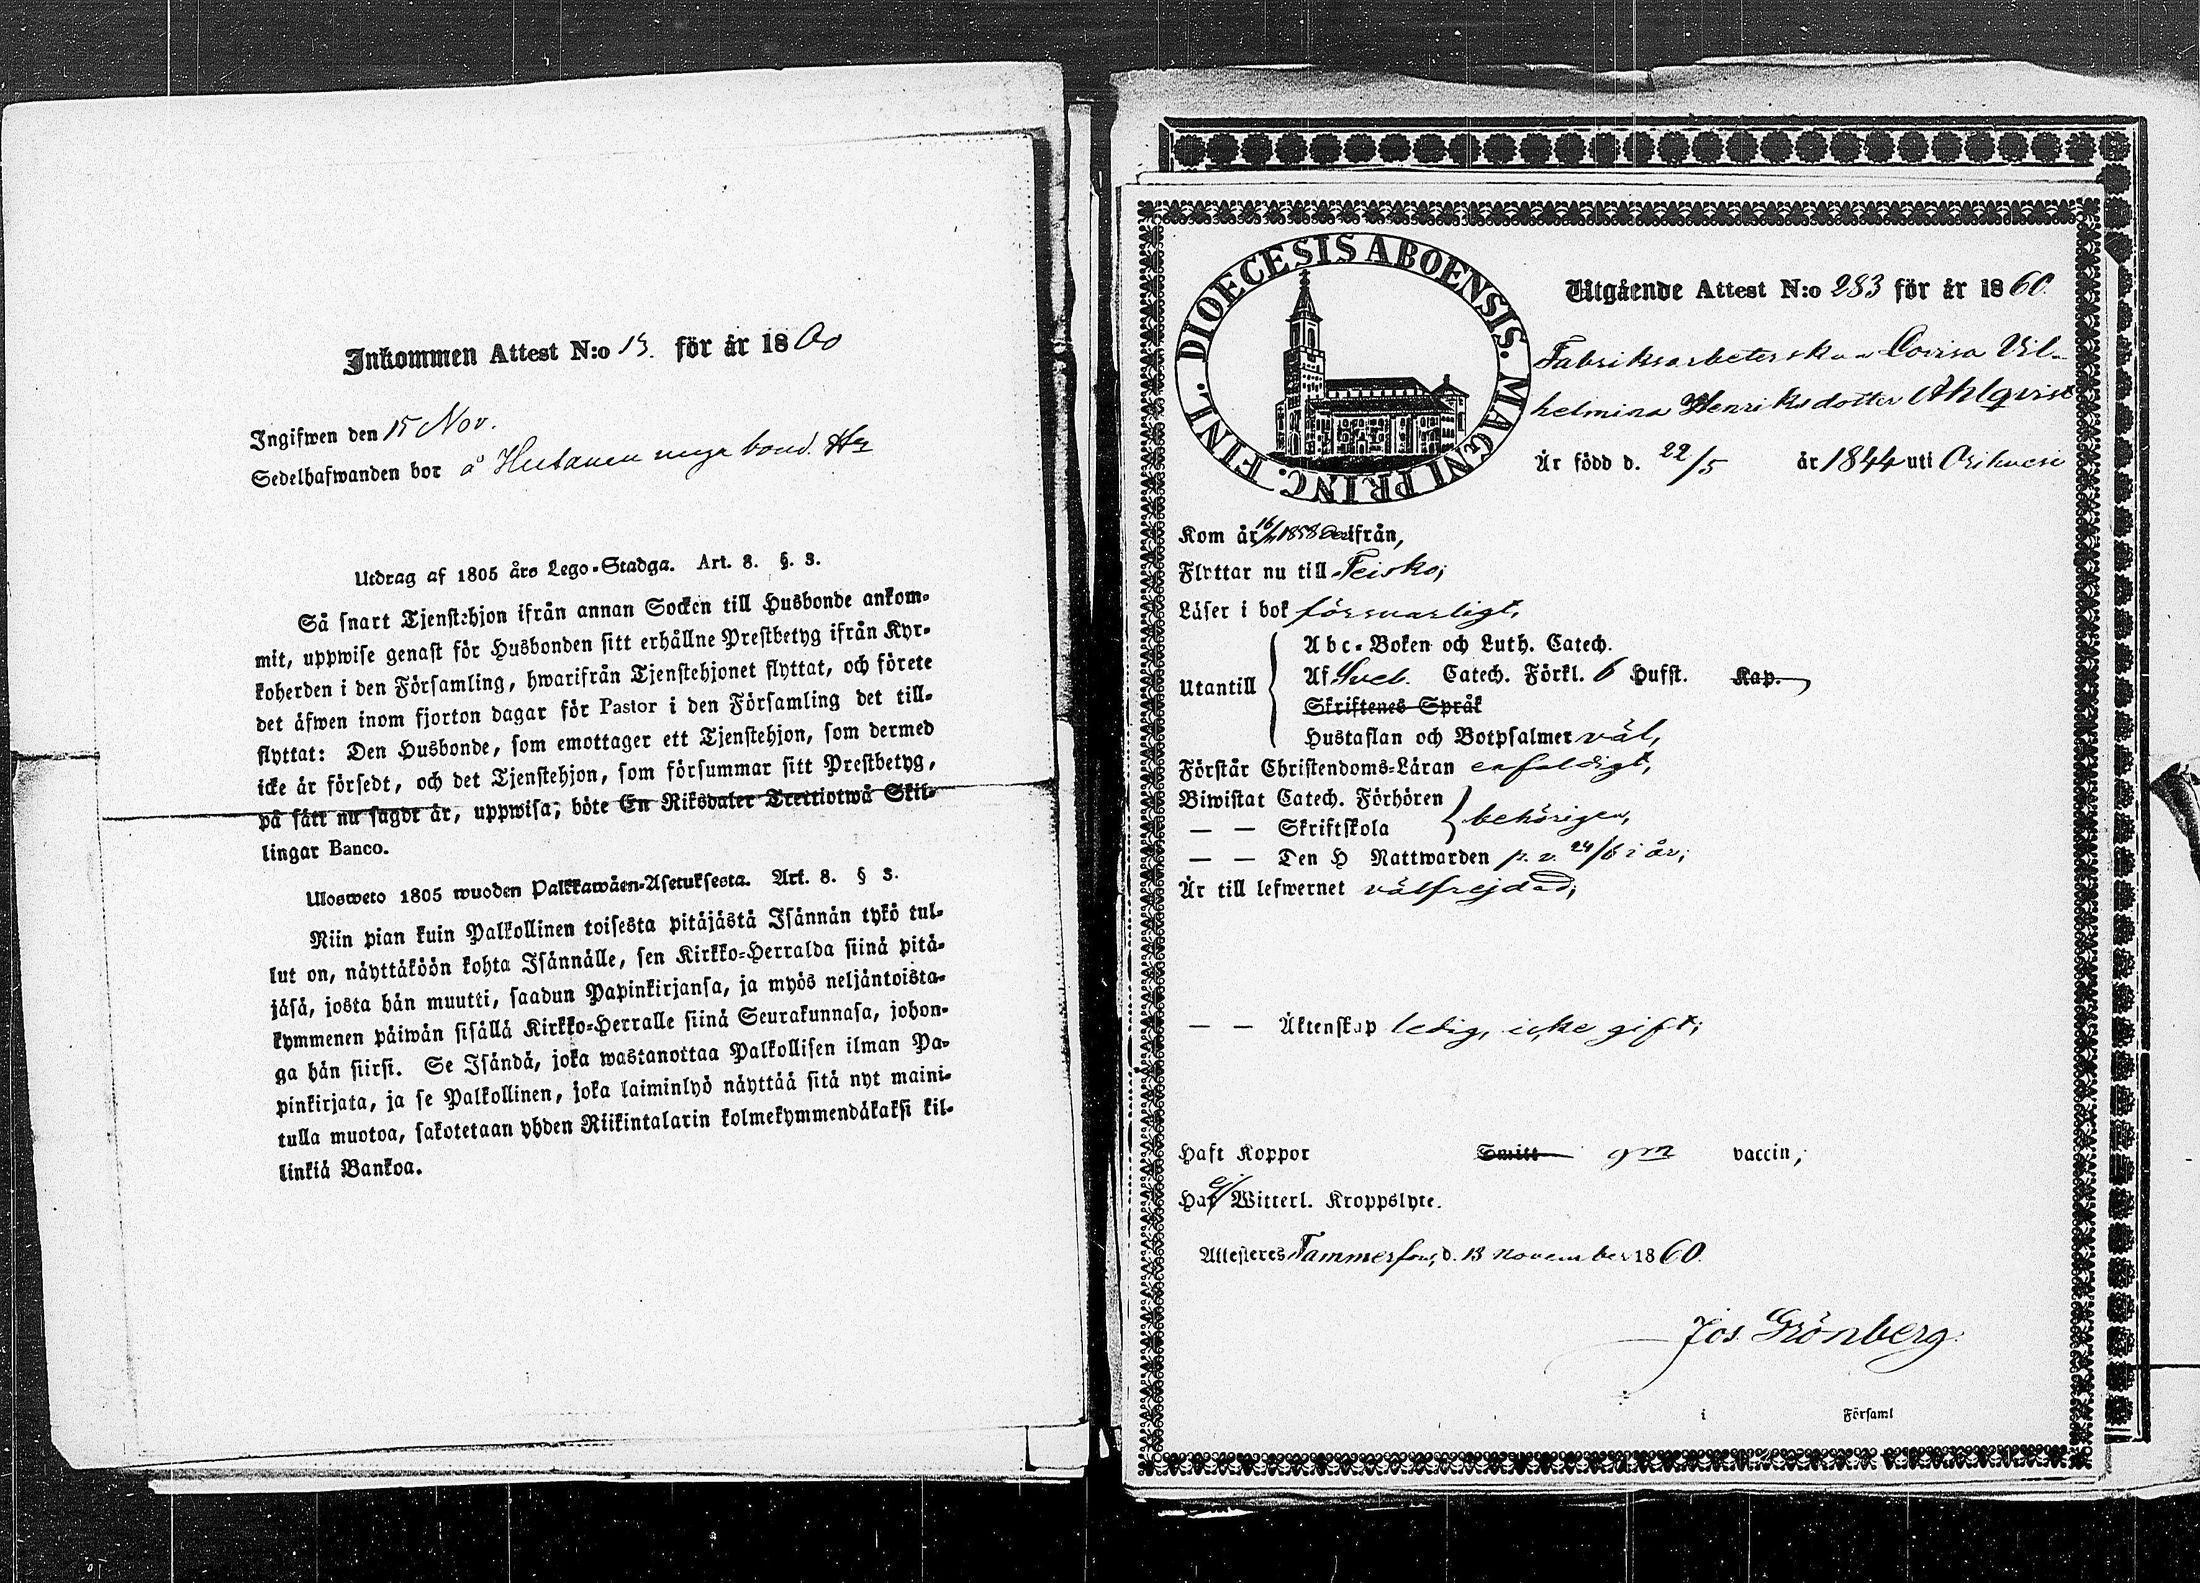 Inkommen Attest N:o 13. för år 1860
Ingifwen den 15 Nov.
Sedelhafwanden bor å
Utdrag af 1805 års Lego-Stadga. Art. 8. §. 3.
Så snart Tjenstehjon ifrån annan Socken till Husbonde ankom-
mit, uppwise genast för Husbonden sitt erhållne Prestbetyg ifrån Kyr-
koherden i den Församling, hwarifrån Tjenstehjonet flyttat, och förete
det äfwen inom fjorton dagar för Pastor i den Församling det till-
flyttat: Den Husbonde, som emottager ett Tjenstehjon, som dermed
icke är försedt, och det Tjenstehjon, som försummar sitt Prestbetyg,
på sätt nu sagdt är, uppwisa, böte En Riksdaler Trettiotwå Skil-
lingar Banco.
Ulosweto 1805 wuoden Palkkawäen-Asetuksesta. Art. 8. § 3.
Niin pian kuin Palkollinen toisesta pitäjästä Isännän tykö tul-
lut on, näyttäköön kohta Isännälle, sen Kirkko-Herralda siinä pitä-
jäsä, josta hän muutti, saadun Papinkirjansa, ja myös neljäntoista-
kymmenen päiwän sisällä Kirkko-Herralle siinä Seurakunnasa, johon-
ga hän siirsi. Se Isändä, joka wastanottaa Palkollisen ilman Pa-
pinkirjata, ja se Palkollinen, joka laiminlyö näyttää sitä nyt maini-
tulla muotoa, sakotetaan yhden Riikintalarin kolmekymmendäkaksi kil-
linkiä Bankoa.
DIOECESIS ABOENSIS. MAGNI PRINC. FINL.
Utgående Attest N:o 283 för år 1860.
Fabriksarbeterskan Lovisa Vil-
helmina Henriksdotter Ahlqvist
Är född d. 22/5 år 1844 uti Orihvesi
Kom år 1858 ifrån,
Flyttar nu till Teisko;
Läser i bok försvarligt,
Abc-Boken och Luth. Catech.
Utantill Af Sveb. Catech. Förkl. 6 Hufst. Kap.
Skriftenes Språk
Hustaflan och Botpsalmer väl,
Förstår Christendoms-Läran enfaldigt,
Biwistat Catech. Förhören
— — Skriftskola behörigen,
— — Den H Nattwarden p. v. 24/6 i år;
Är till lefwernet välfrejdad;
— — Äktenskap ledig, icke gift;
Haft Koppor Smitt gm vaccin;
Haf ej Witterl. Kroppslyte.
Attesteres Tammerfors, d. 13 november 1860.
Jos. Grönberg.
i Församl